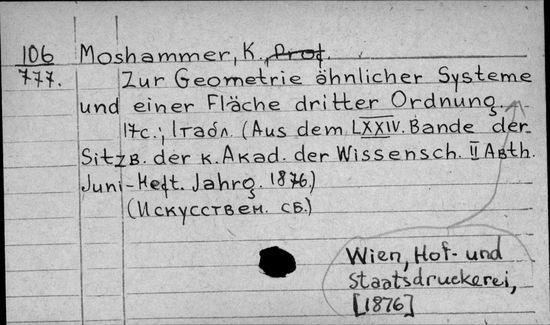 106 Moshammer, K., Prof.
777. Zur Geometrie ähnlicher Systeme
und einer Fläche dritter Ordnung.
17с.; 1табл. (Aus dem LXXIV. Bande der
Sitzb. der K. Akad. der Wissensch. II Abth.
Juni-Heft. Jahrg. 1876.)
(Искусствен. сб.)
Wien, Hof- und
Staatsdruckerei,
[1876]